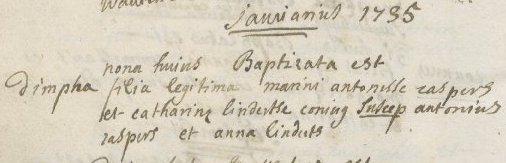 Januarius 1735
nona huius Baptizata est
dimpha filia legitima marini antonisse caspers
et catharinæ lindertse coniug suscep antonius
caspers et anna linderts